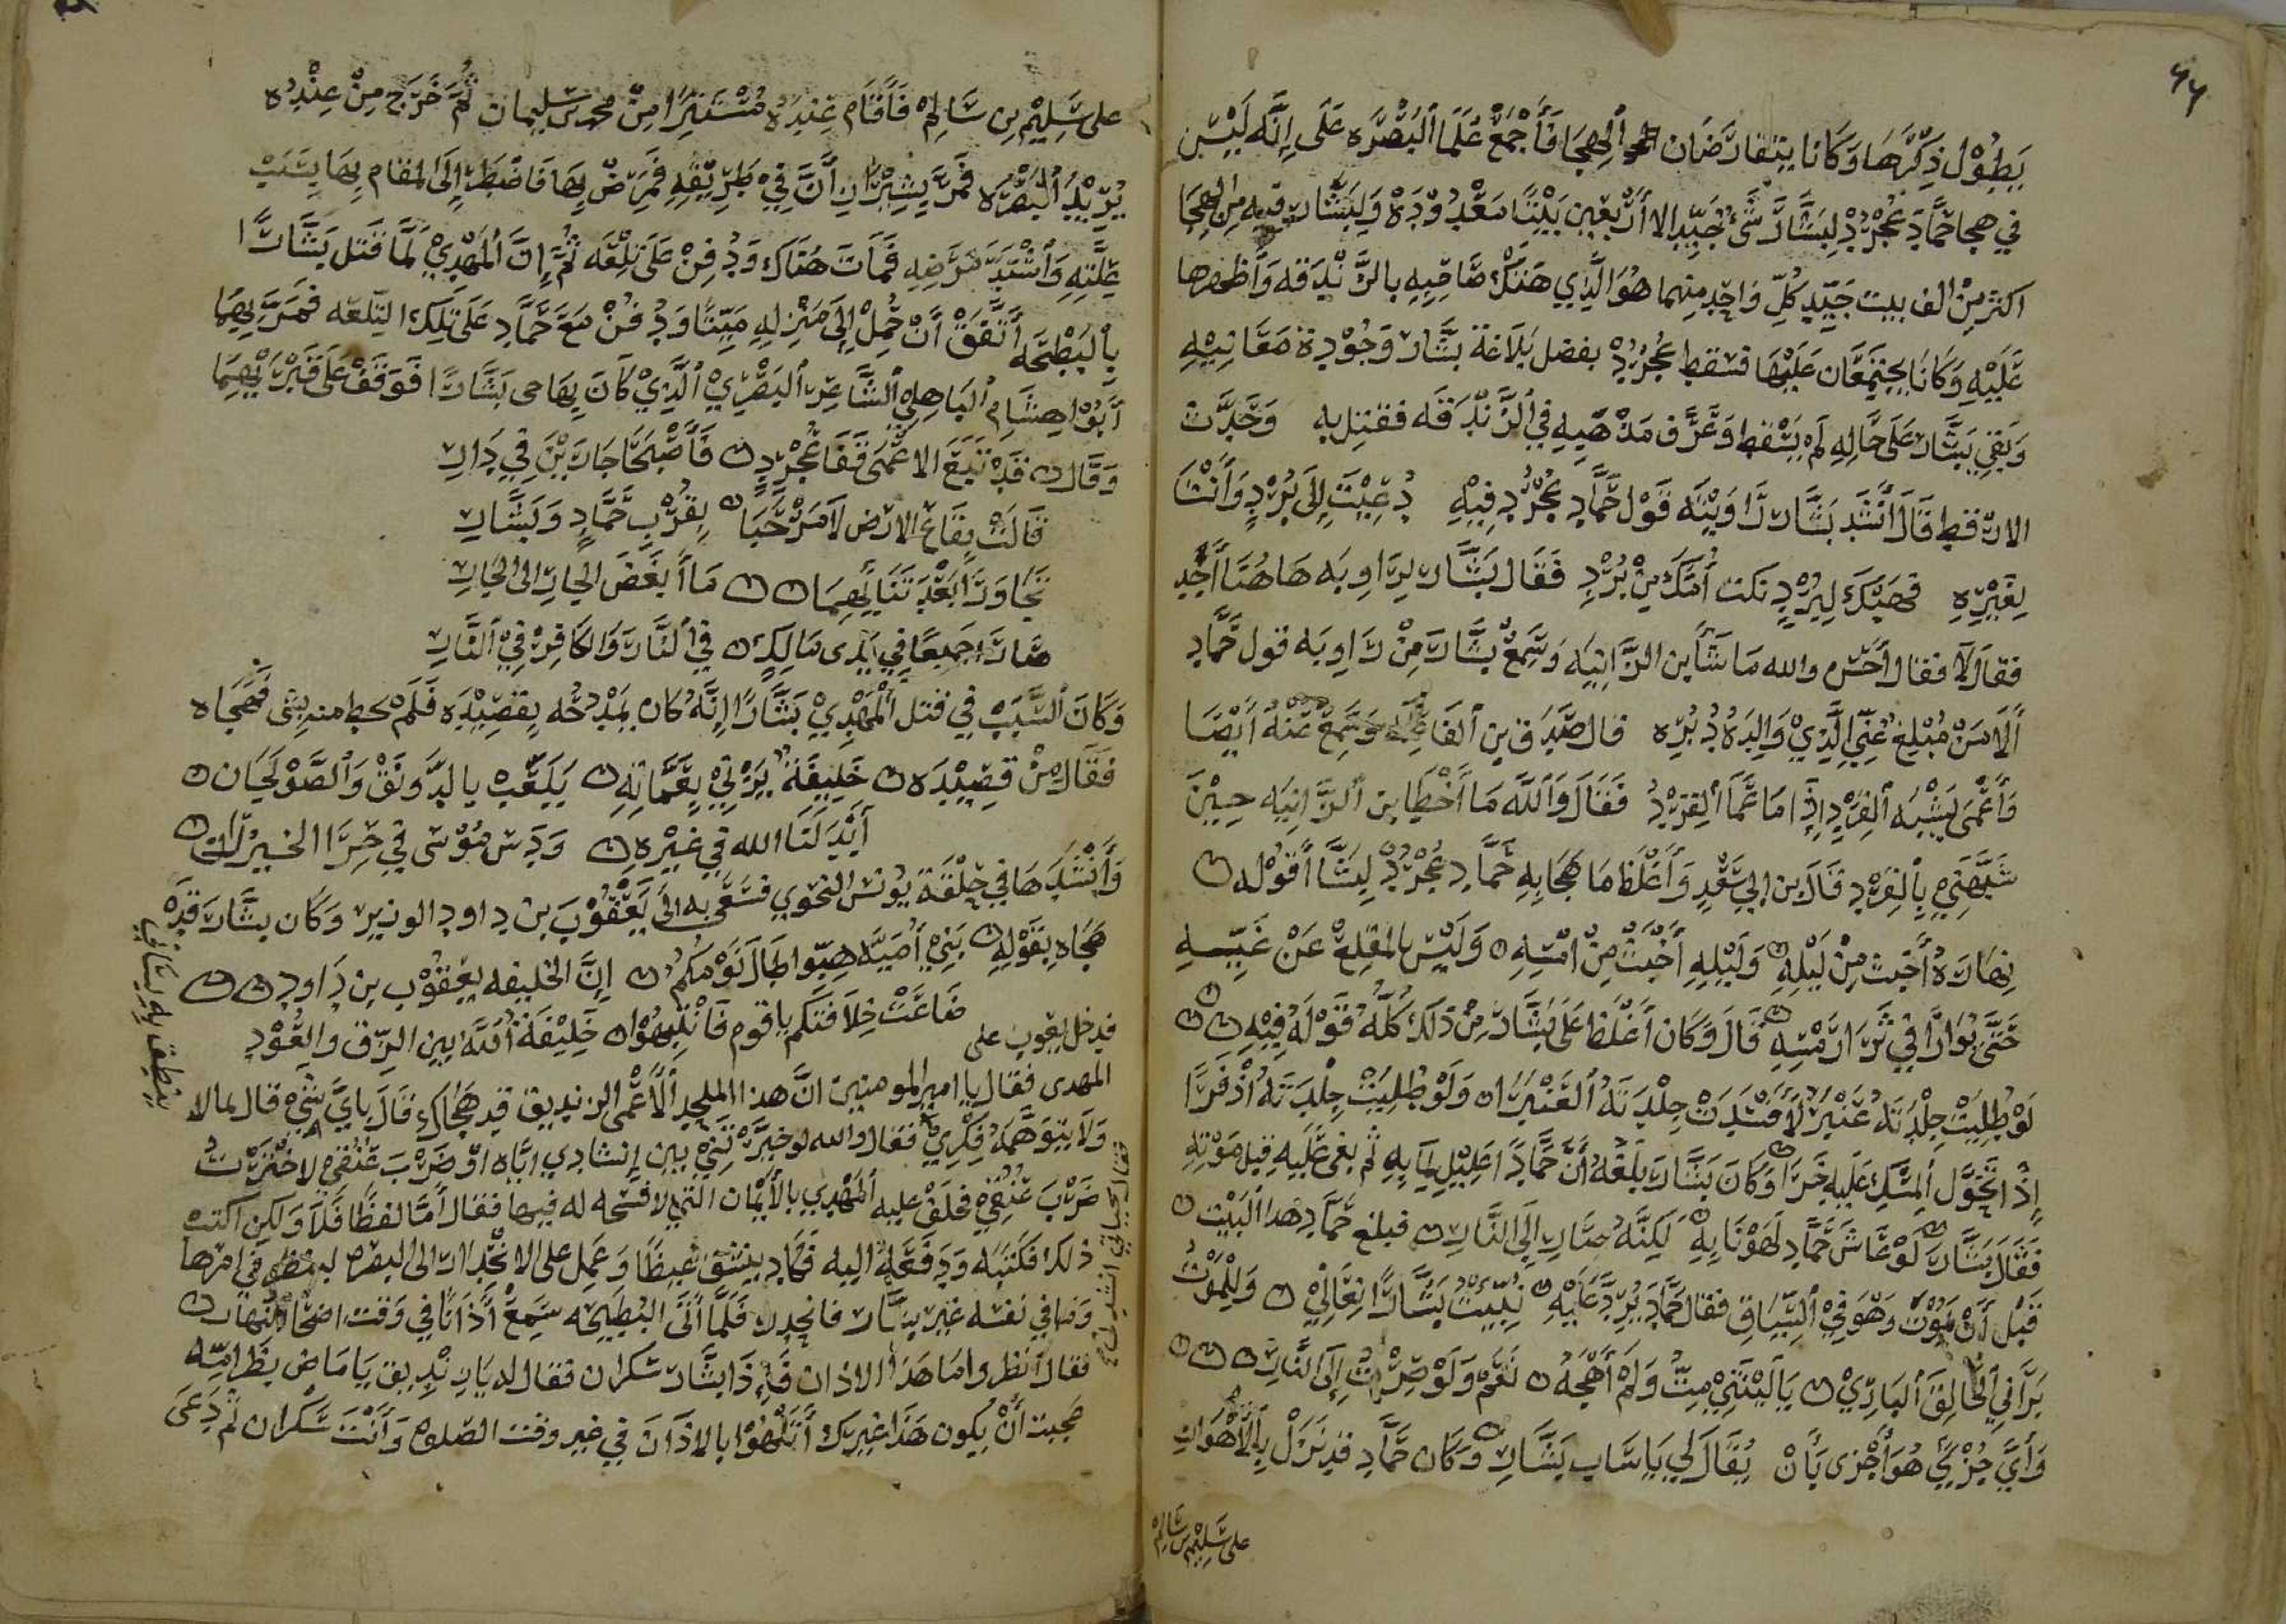 يطول ذكرها وكانا يتقارضان الهجا فأجمع علما البصره على انه ليس
في هجا حماد عجرد لبشار شئ جيد الا أربعين بيتا معدوده ولبشار فيه من الهجا
اكثر من الف بيت جيد كل واحد منهما هو الذي هتك صاحبه بالزندقه وأظهرها
عليه وكانا يجتمعان عليها فسقط عجرد بفضل بلاغة بشار وجودة معانيه
وبقي بشار على حاله لم يسقط وعرف مذهبه في الزندقه فقتل به وحدث
الارقط قال أنشد بشار راويته قول حماد عجرد فيه دعيت إلى برد وأنت
لغيره فهبك لبرد نكت أمك من برد فقال بشار لراويه هاهنا أحد
فقال لا فقال أحسن والله ما شا ابن الزانيه وسمع بشار من راويه قول حماد
ألا من مبلغ عني الذي والده برد قال صدق ابن الفاعله وسمع عنه أيضا
وأعمى يشبه القرد إذا ما عما القرد فقال والله ما أخطا بن الزانيه حين
شبهني بالقرد قال بن ابي سعد وأغلظ ما هجا به حماد عجرد لبشا أقوله
نهاره أخبث من ليله وليله أخبث من امسه وليس بالمقلع عن غيه
حتى يوارا في ثرا رمسه قال وكان أغلظ على بشار من ذلك كله قوله فيه
لو طليت جلدته عنبر لأفسدت جلدته العنبران ولو طليت جلدته أذفرا
إذا تحول المسك عليه خرا وكان بشار بلغه أن حماد اعليل لما به ثم بغى عليه قبل موته
فقال بشار لو عاش حماد لهونا به لكنه صار إلى النار فبلغ حماد هدا البيت
قبل أن يموت وهو في السياق فقال حماد يرد عليه نبيت بشارا نعاني وللموت
براني الخالق الباري يا ليتني مت ولم أهجه نعم ولو صرت إلى النار
وأي خزي هو أخزى بأن يقال لي يا ساب بشار وكان حماد قد نزل بالأهواز
على سليم بن سالم
على سليم بن سالم فأقام عنده مستترا من محمد بن سليمان ثم خرج من عنده
يريد البصره فمر بشيرزان في طريقه فمرض بها فاضطر إلى المقام بها بسبب
علته وأشتد مرضه فمات هناك ودفن على تلعه ثم إن المهدي لما قتل بشارا
بالبطحه أتفق أن حمل إلى منزله ميتا ودفن مع حماد على تلك التلعه فمر بهما
أبوا هشام الباهلي الشاعر البصري الذي كان يهاجي بشارا فوقف على قبريهما
وقال قد تبع الاعمى قفا عجرد فأصبحا جارين في دار
قالت بقاع الارض لا مرحبا بقرب حماد وبشار
تجاورا بعد تنائيهما ما أبغض الجار الى الجار
صارا جميعا في يدى مالك في النار والكافر في النار
وكان السبب في قتل المهدي بشارا إنه كان يمدحه بقصيده فلم يحط منه بشى فهجاه
فقال من قصيده خليفة يزني بعماته يلعب بالدونق والصولجان
أبدلنا الله في غيره ودس موسى في حرا الخيزران
وأنشدها في حلقة يونس النحوي فسعى به الى يعقوب بن داود الوزير وكان بشار قد
هجاه بقوله بني أميه هبوا طال نومكم إن الخليفه يعقوب بن داود
ضاعت خلافتكم يا قوم فانتبهوا خليفة الله بين الزق والعود
فدخل يعقوب على
المهدى فقال يا امير المومنين ان هذا الملحد الأعمى الزنديق قد هجاك قال باي شي قال بما لا
ينطق به لساني
ولا يتوهمه فكري فقال والله لو خيرتني بين إنشادي اياه او ضرب عنقي لاخترت
ضرب عنقي فحلف عليه المهدي بالأيمان التي لا فسحه له فيها فقال أما لفظا فلا ولكن اكتب
ذلك فكتبه ودفعه اليه فكاد ينشق غيظا وعمل على الانحدار الى البصره لينظر في امرها
وما في نفسه غير بشار فانحدر فلما أتى البطيحه سمع أذانا في وقت اضحا النهار
فقال انظروا ما هذا الاذان فإذا بشار سكران فقال له يا زنديق يا ماض بظر امه
عجبت أن يكون هذا غيرك أتلهوا بالاذان في غير وقت الصلوه وأنت سكران ثم دعى